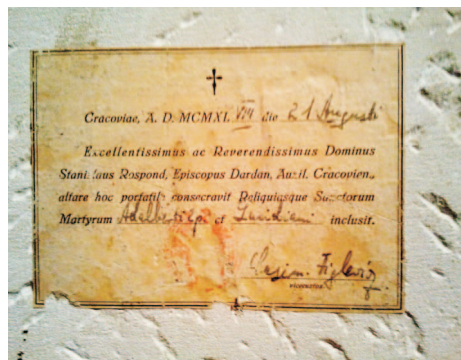 Cracoviae, A. D. MCMXL VIII die 21 Augusti
Excellentissimus ac Reverendissimus Dominus
Stanislaus Rospond, Episcopus Dardan, Auxil. Cracovien.,
altare hoc portatile consecravit Reliquiasque Sanctorum
Martyrum Adalberti ep. et inclusit.
Figlewicz